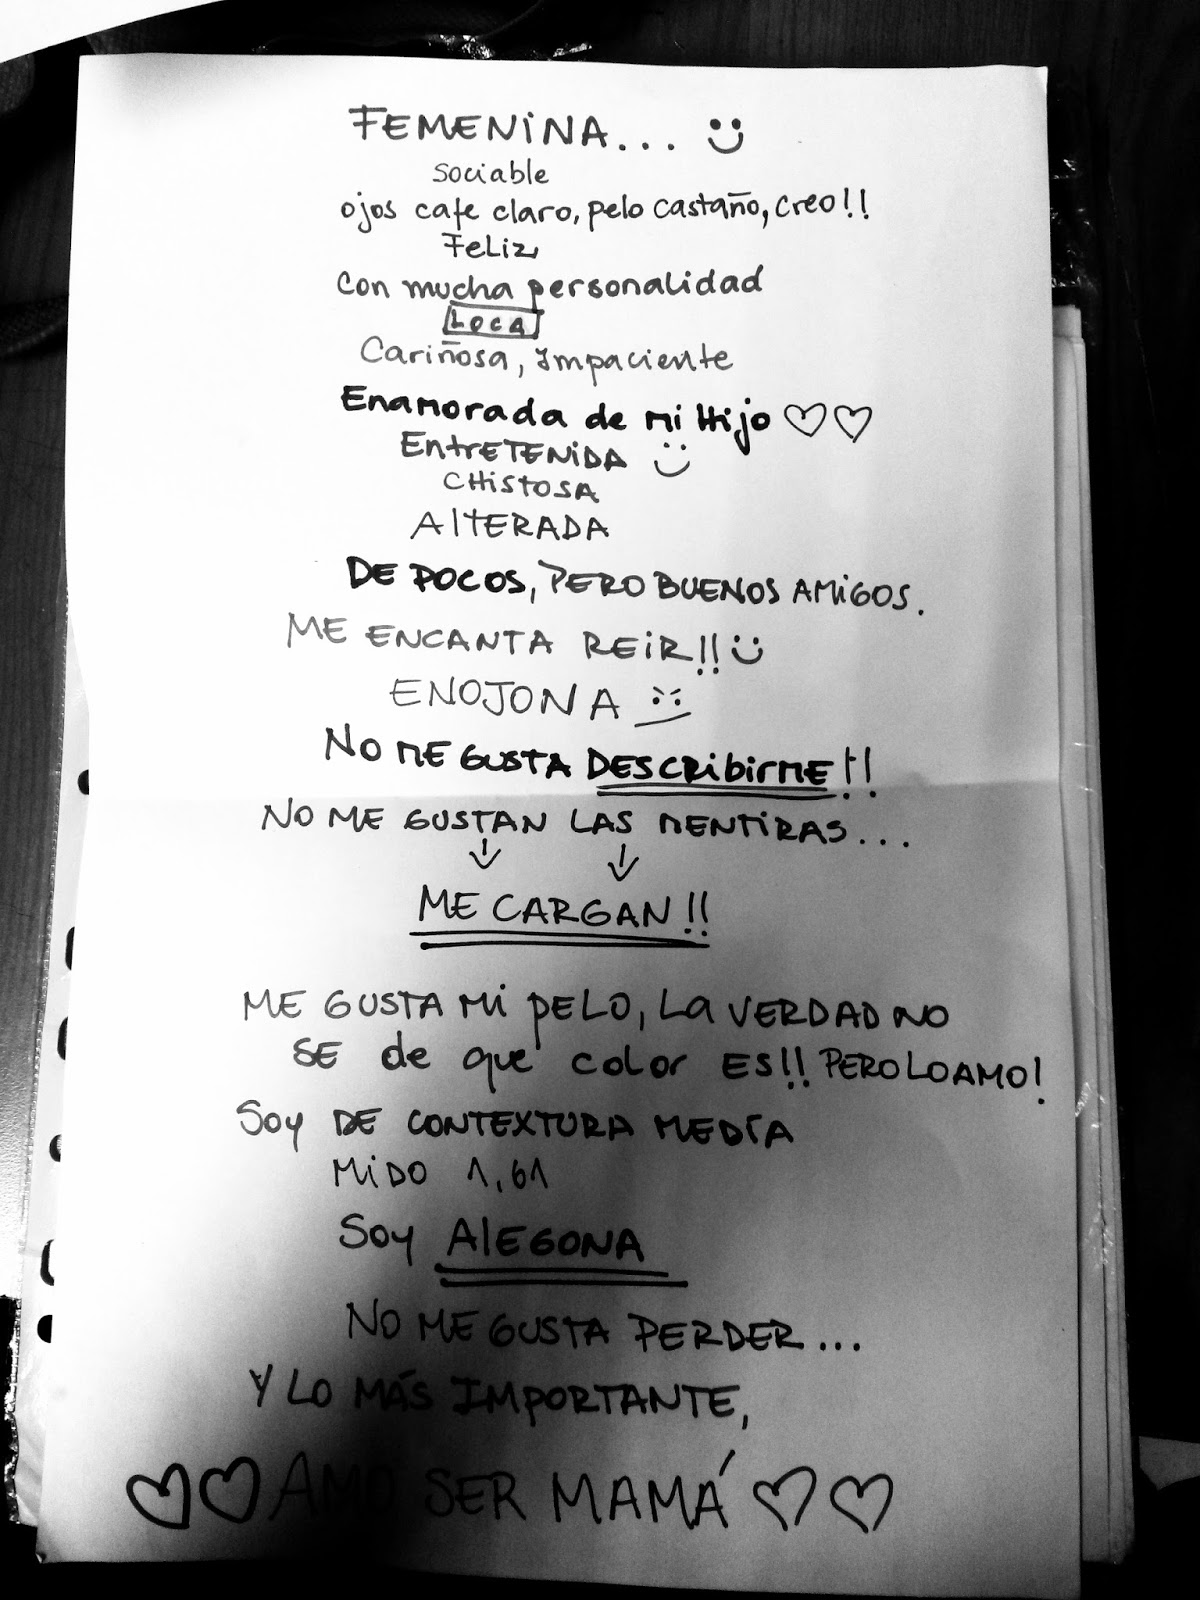 FEMENINA...
sociable
ojos cafe claro, pelo castaño, creo!!
Feliz
con mucha personalidad
LOCA
Cariñosa, Impaciente
Enamorada de mi Hijo
ENTRETENIDA
CHISTOSA
AlTERADA
DE POCOS, PERO BUENOS AMIGOS.
ME ENCANTA REIR!!
ENOJONA
NO ME GUSTA DESCRIBIRME!!
NO ME GUSTAN LAS MENTIRAS...
ME CARGAN!!
ME GUSTA MI PELO, LA VERDAD NO
SE de que color ES!! PERO LO AMO!
SOY DE CONTEXTURA MEDIA
MIDO 1,61
SOY AlEGONA
NO ME GUSTA PERDER...
Y LO MÁS IMPORTANTE,
AMO SER MAMÁ